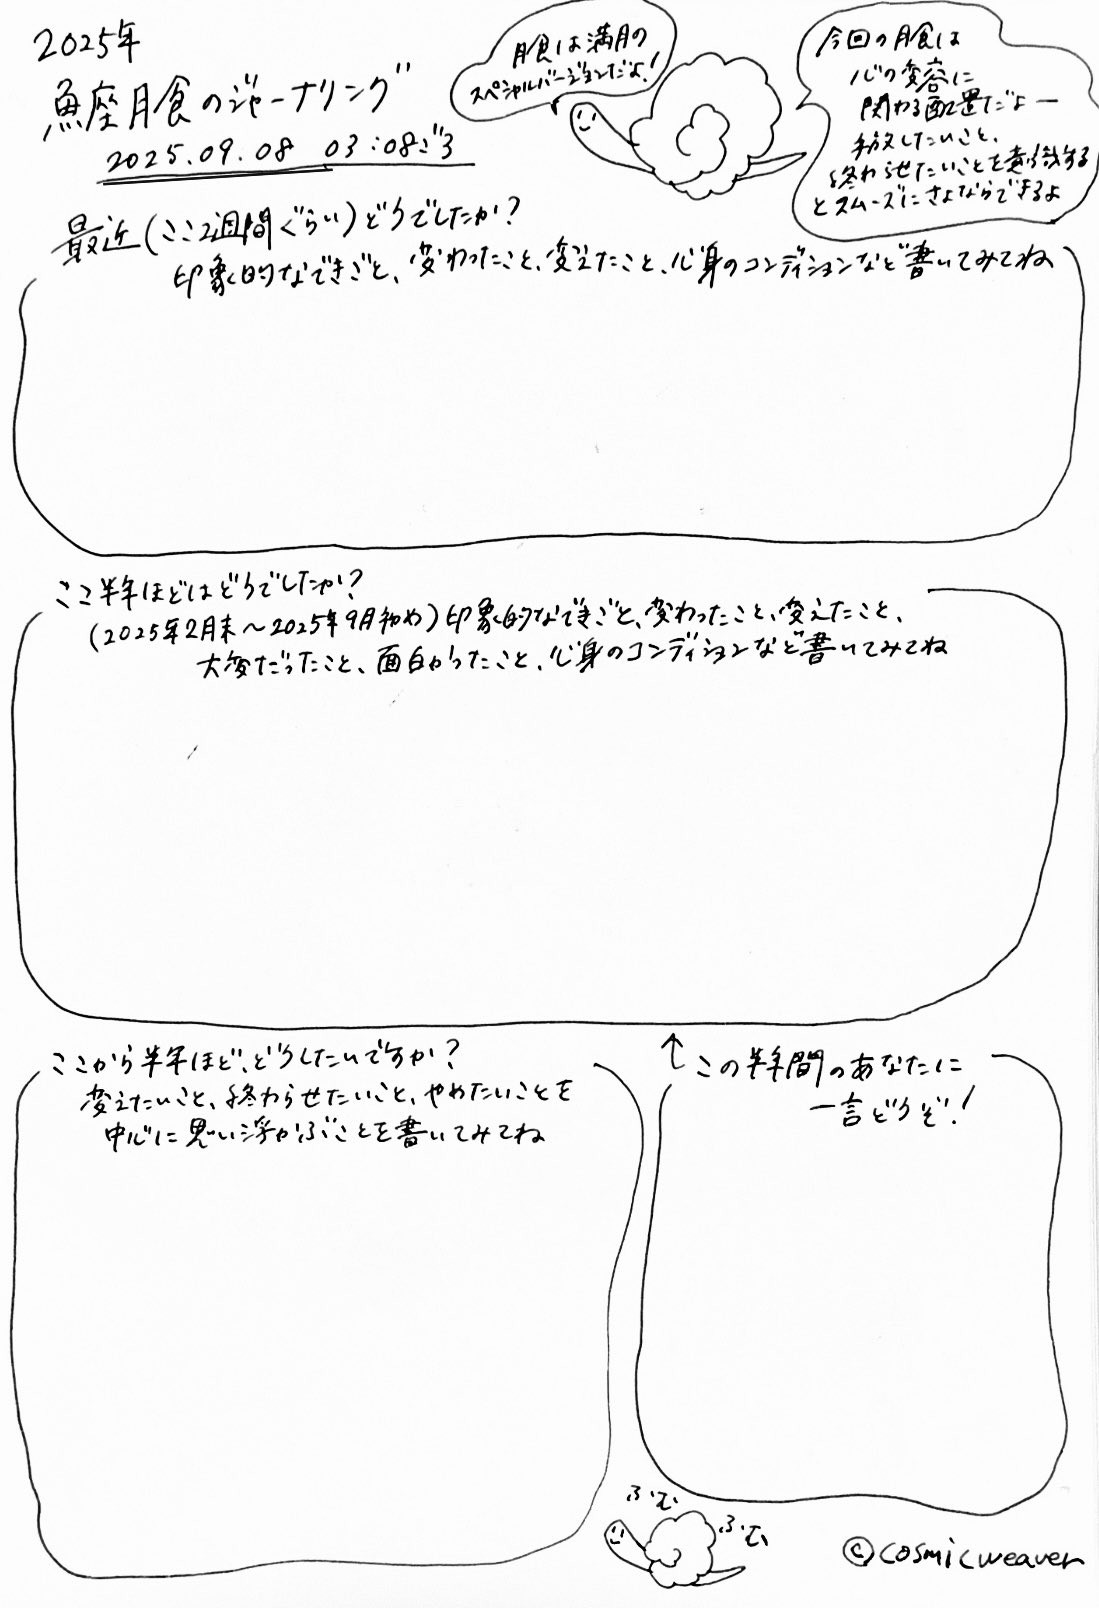 2025年
魚座月食のジャーナリング
2025.09.08 03:08ごろ
月食は満月の
スペシャルバージョンだよ！
今回の月食は
心の変容に
関わる配置だよー
手放したいこと、
終わらせたいことを意識する
とスムーズにさよならできるよ
最近(ここ2週間ぐらい)どうでしたか？
印象的なできごと、変わったこと、変えたこと、心身のコンディションなど書いてみてね
ここ半年ほどはどうでしたか？
(2025年2月末〜2025年9月初め)印象的なできごと、変わったこと、変えたこと、
大変だったこと、面白かったこと、心身のコンディションなど書いてみてね
ここから半年ほど、どうしたいですか？
変えたいこと、終わらせたいこと、やめたいことを
中心に思い浮かぶことを書いてみてね
↑この半年間のあなたに
一言どうぞ！
ふむ
ふむ
©cosmicweaver